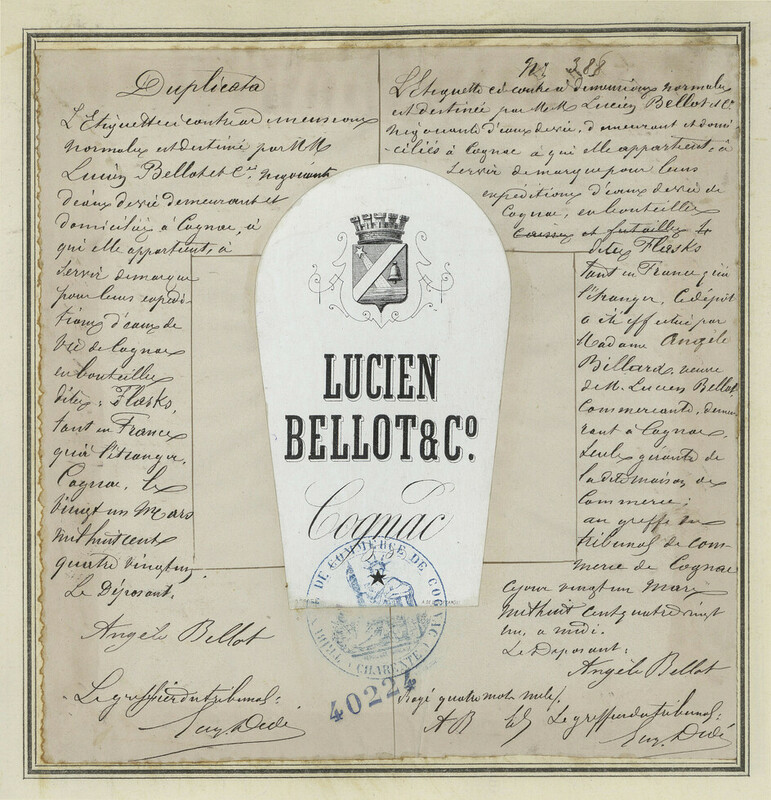 Duplicata
L'Etiquette ci contre a dimensions
normales est destinée par MM
Lucien Bellot et Cie, négociants
d'eaux de vie demeurant et
domiciliés à Cognac, à
qui elle appartient, à
servir de marque
pour leurs expédi-
tions d'eaux de
vie de Cognac
en bouteilles
dites: Flasks,
tant en France
qu'à l'étranger,
Cognac, le
vingt un Mars
mil huit cent
quatre vingt un
Le Déposant,
Angèle Bellot
Le greffier du tribunal:
Eug. Dédé
No 388
L'Etiquette ci contre à dimensions normales
est destinée par MM. Lucien Bellot et Cie
négociants d'eaux de vie, demeurant et domi-
ciliés à Cognac à qui elle appartient, à
servir de marque pour leurs
expéditions d'eaux de vie de
Cognac, en bouteilles
caisses et futailles
dites Flasks
tant en France qu'à
l'étranger, Le dépôt
a été effectué par
Madame Angèle
Billard, veuve
de M. Lucien Bellot,
Commerçante, demeu-
rant à Cognac,
Seule gérante de
la dite maison de
Commerce;
au greffe du
tribunal de com-
merce de Cognac
Ce jour vingt un Mars
mil huit cent quatre vingt
un, à midi.
Le Déposant:
Angèle Bellot
Rayé quatre mots nuls.
AB ED Le greffier du tribunal:
Eug. Dédé
LUCIEN
BELLOT & Co.
Cognac
DE COMMERCE DE COGNAC
(CHARENTE)
40224